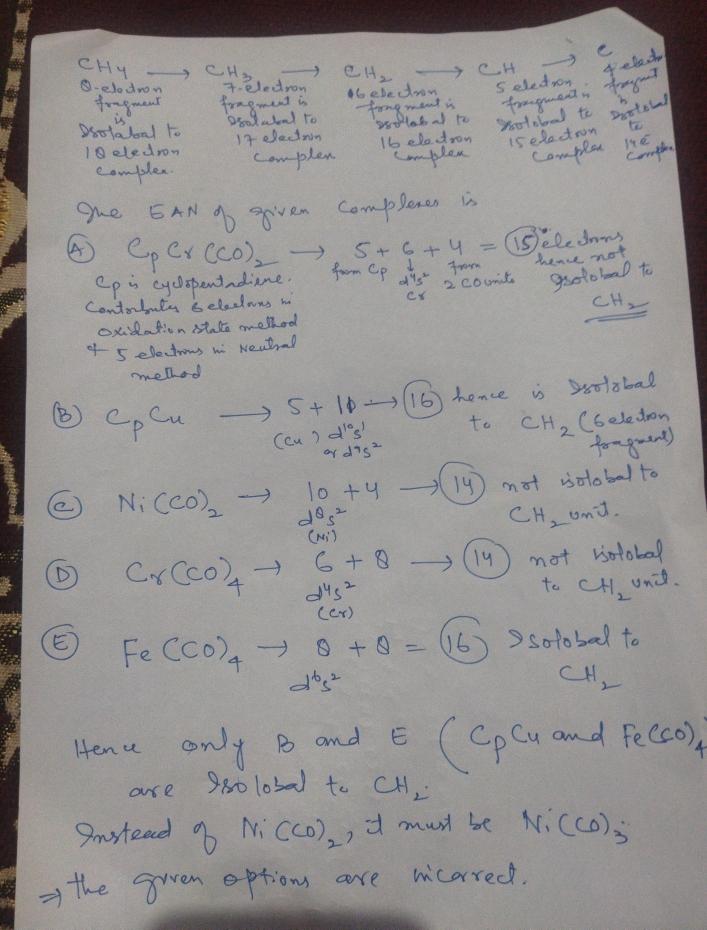 CH4 → CH3 → CH2 → CH → C
8-electron fragment is Isolabal to 18 electron complex.
7-electron fragment is Isolabal to 17 electron complex
6 electron fragment is Isolobal to 16 electron complex
5 electron fragment is Isolobal to 15 electron complex
4 electron fragment is Isolobal to 14 e complex
The EAN of given complexes is
(A) CpCr(CO)2 → 5 + 6 + 4 = 15 electrons
from Cp ↓ from 2 CO units hence not
d4s2 Isolobal to
Cr CH2
Cp is cyclopentadiene.
Contributes 6 electrons in
oxidation state method
& 5 electrons in Neutral
method
(B) CpCu → 5 + 10 → 16 hence is Isolobal
(Cu) d10s1 to CH2 (6 electron
or d9s2 fragment)
(C) Ni(CO)2 → 10 + 4 → 14 not isolobal to
d8s2 CH2 unit.
(Ni)
(D) Cr(CO)4 → 6 + 8 → 14 not isolobal
d4s2 to CH2 unit.
(Cr)
(E) Fe(CO)4 → 8 + 8 = 16 Isolobal to
d6s2 CH2
Hence only B and E (CpCu and Fe(CO)4
are Isolobal to CH2.
Instead of Ni(CO)2, it must be Ni(CO)3;
⇒ the given options are incorrect.